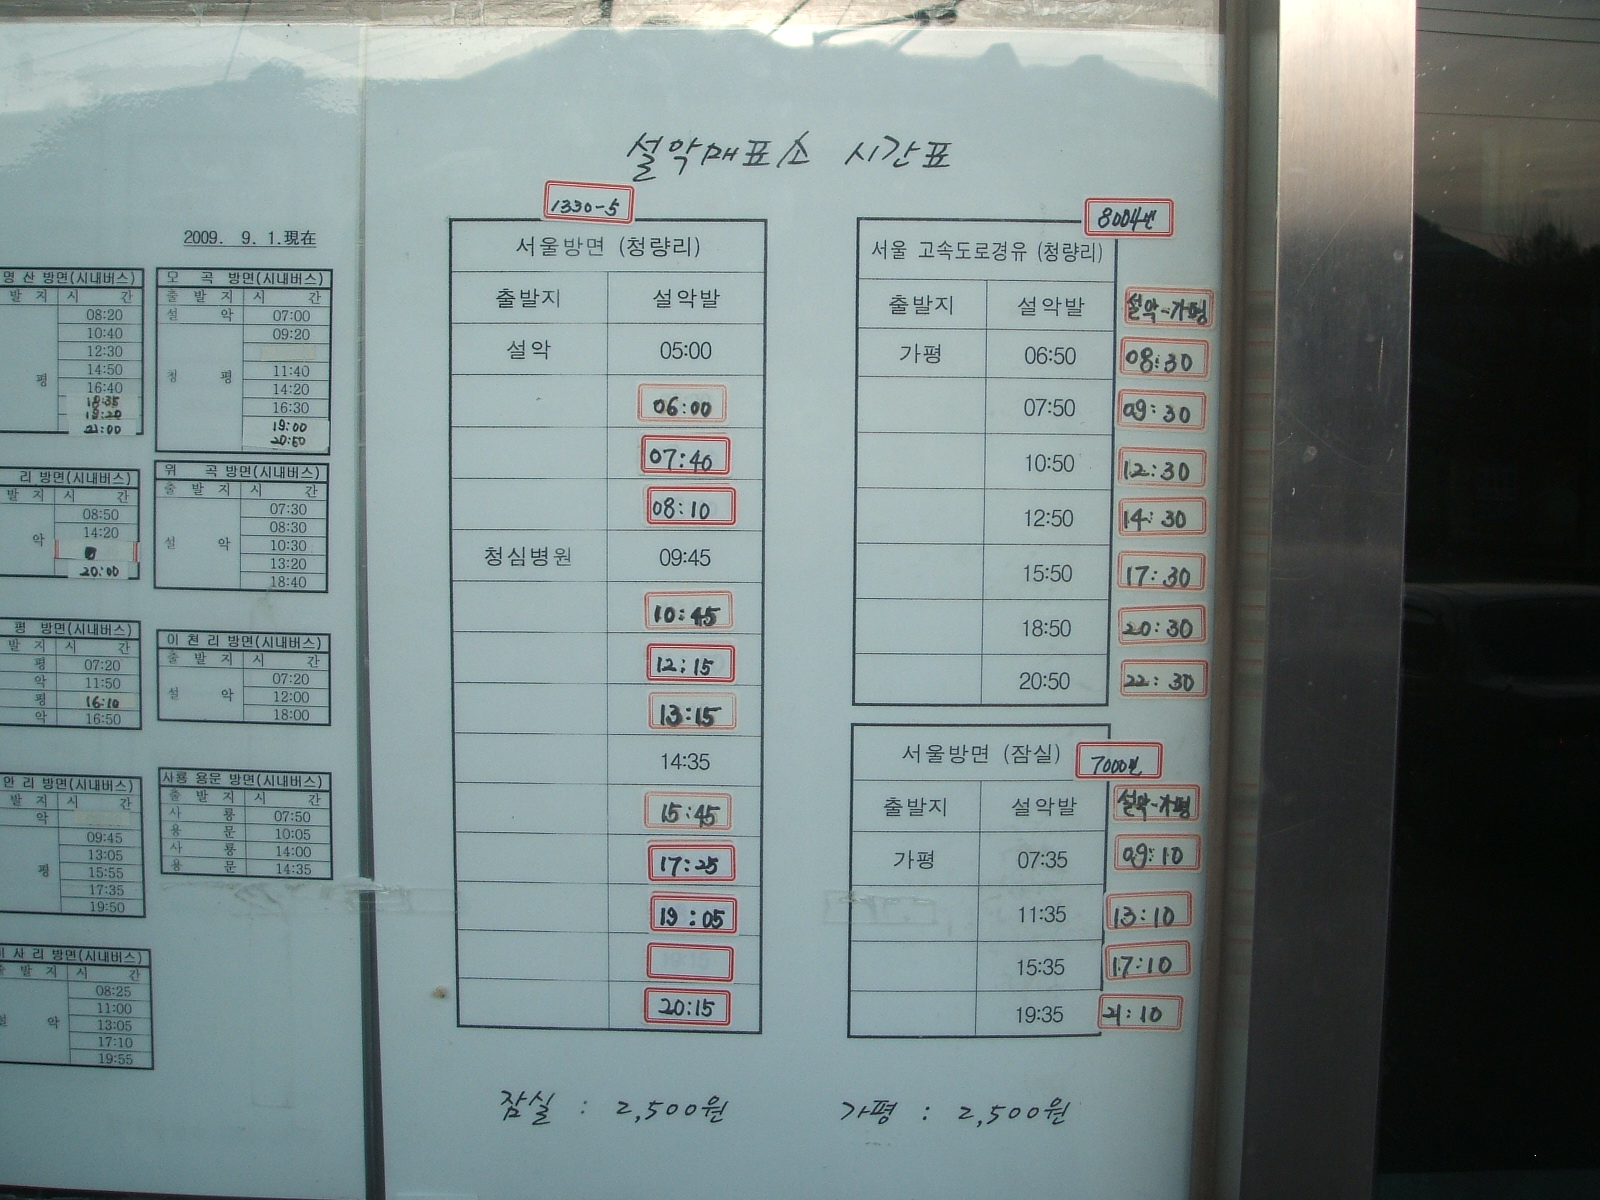 설악매표소 시간표
2009. 9. 1.現在
명 산 방면(시내버스)
발 지 시 간
08:20
10:40
12:30
평 14:50
16:40
18:35
19:20
21:00
모 곡 방면(시내버스)
출 발 지 시 간
설 악 07:00
09:20
청 평 11:40
14:20
16:30
19:00
20:50
리 방면(시내버스)
발 지 시 간
08:50
악 14:20
20:00
위 곡 방면(시내버스)
출 발 지 시 간
07:30
08:30
설 악 10:30
13:20
18:40
평 방면(시내버스)
발 지 시 간
평 07:20
악 11:50
평 16:10
악 16:50
이 천 리 방면(시내버스)
출 발 지 시 간
07:20
설 악 12:00
18:00
안 리 방면(시내버스)
발 지 시 간
악
09:45
13:05
평 15:55
17:35
19:50
사룡 용문 방면(시내버스)
출 발 지 시 간
사 룡 07:50
용 문 10:05
사 룡 14:00
용 문 14:35
이 사 리 방면(시내버스)
출 발 지 시 간
08:25
11:00
설 악 13:05
17:10
19:55
1330-5
서울방면 (청량리)
출발지 설악발
설악 05:00
06:00
07:40
08:10
청심병원 09:45
10:45
12:15
13:15
14:35
15:45
17:25
19:05
20:15
8004번
서울 고속도로경유 (청량리)
출발지 설악발 설악-가평
가평 06:50 08:30
07:50 09:30
10:50 12:30
12:50 14:30
15:50 17:30
18:50 20:30
20:50 22:30
서울방면 (잠실) 7000번
출발지 설악발 설악-가평
가평 07:35 09:10
11:35 13:10
15:35 17:10
19:35 21:10
잠실 : 2,500원
가평 : 2,500원